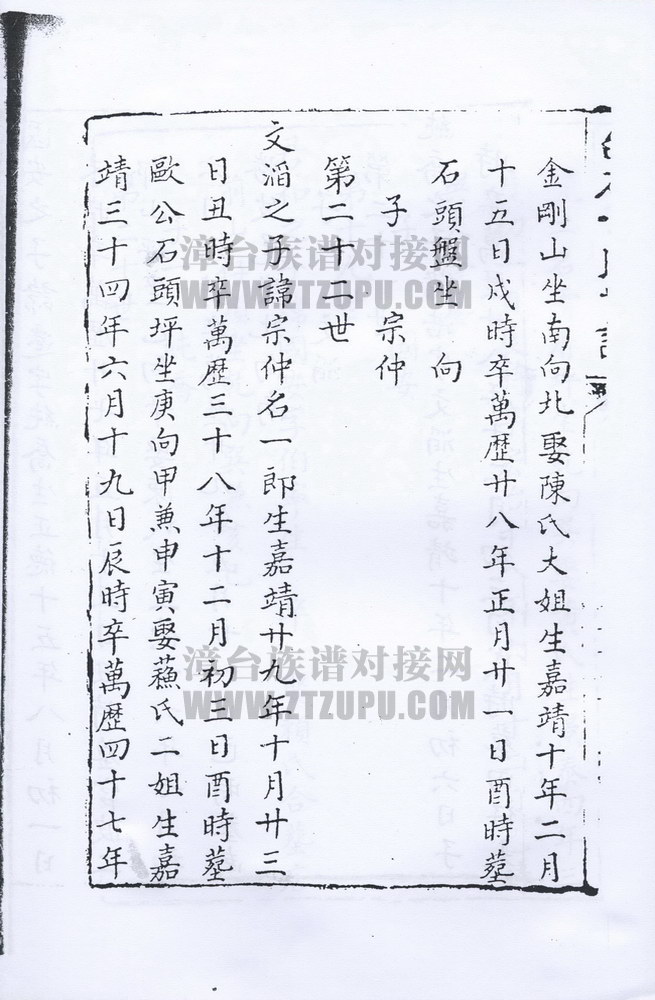 金剛山坐南向北娶陳氏大姐生嘉靖十年二月
十五日戌時卒萬歷廿八年正月廿一日酉時塟
石頭盤坐 向
子 宗仲
第二十二世
文滔之子諱宗仲名一郎生嘉靖廿九年十月廿三
日丑時卒萬歷三十八年十二月初三日酉時塟
歐公石頭坪坐庚向甲兼申寅娶蘓氏二姐生嘉
靖三十四年六月十九日辰時卒萬歷四十七年
漳台族谱对接网
WWW.ZTZUPU.COM
漳台族谱对接网
WWW.ZTZUPU.COM